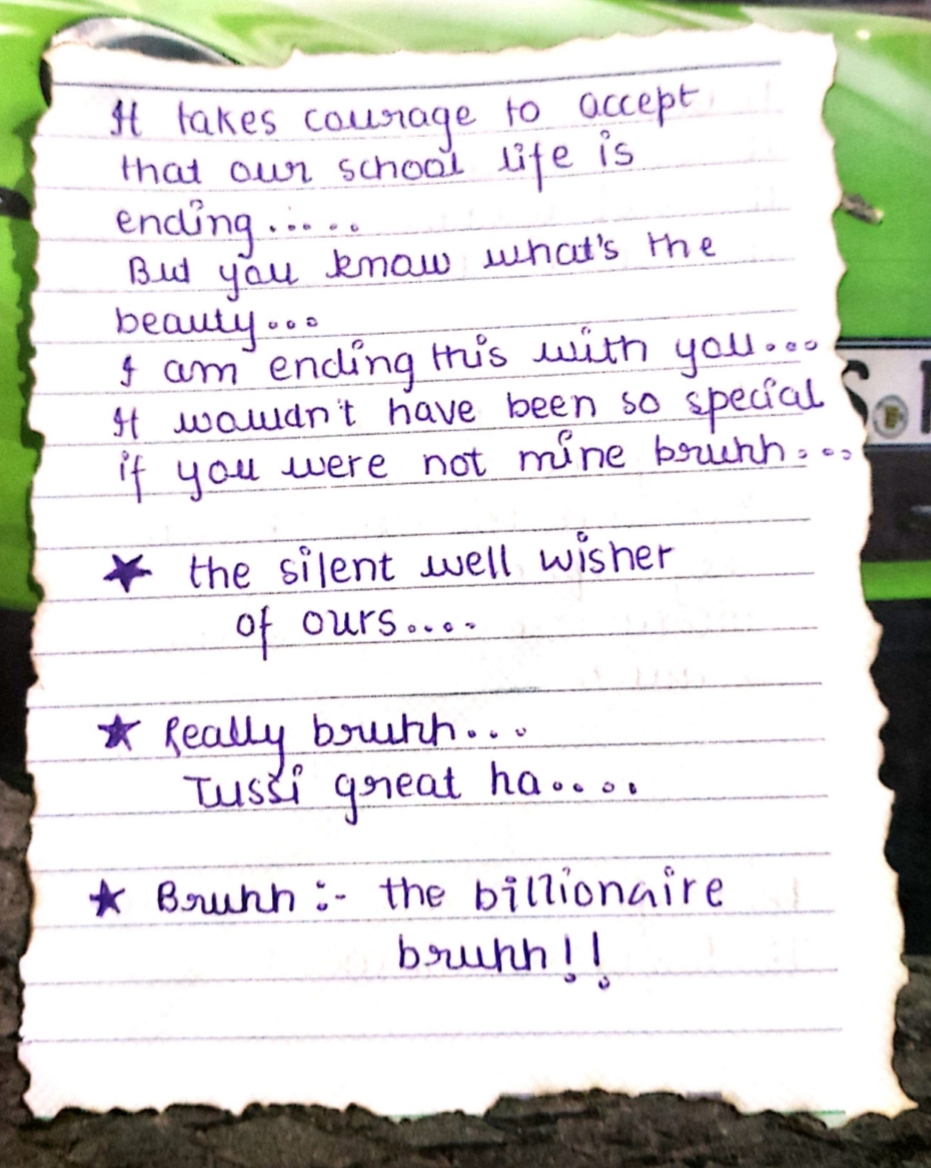 It takes courage to accept
that our school life is
ending.....
But you know what's the
beauty...
I am ending this with you...
It wouldn't have been so special
if you were not mine bruhh....
★ the silent well wisher
of ours....
★ Really bruhh...
Tussi great ha....
★ Bruhh :- the billionaire
bruhh!!